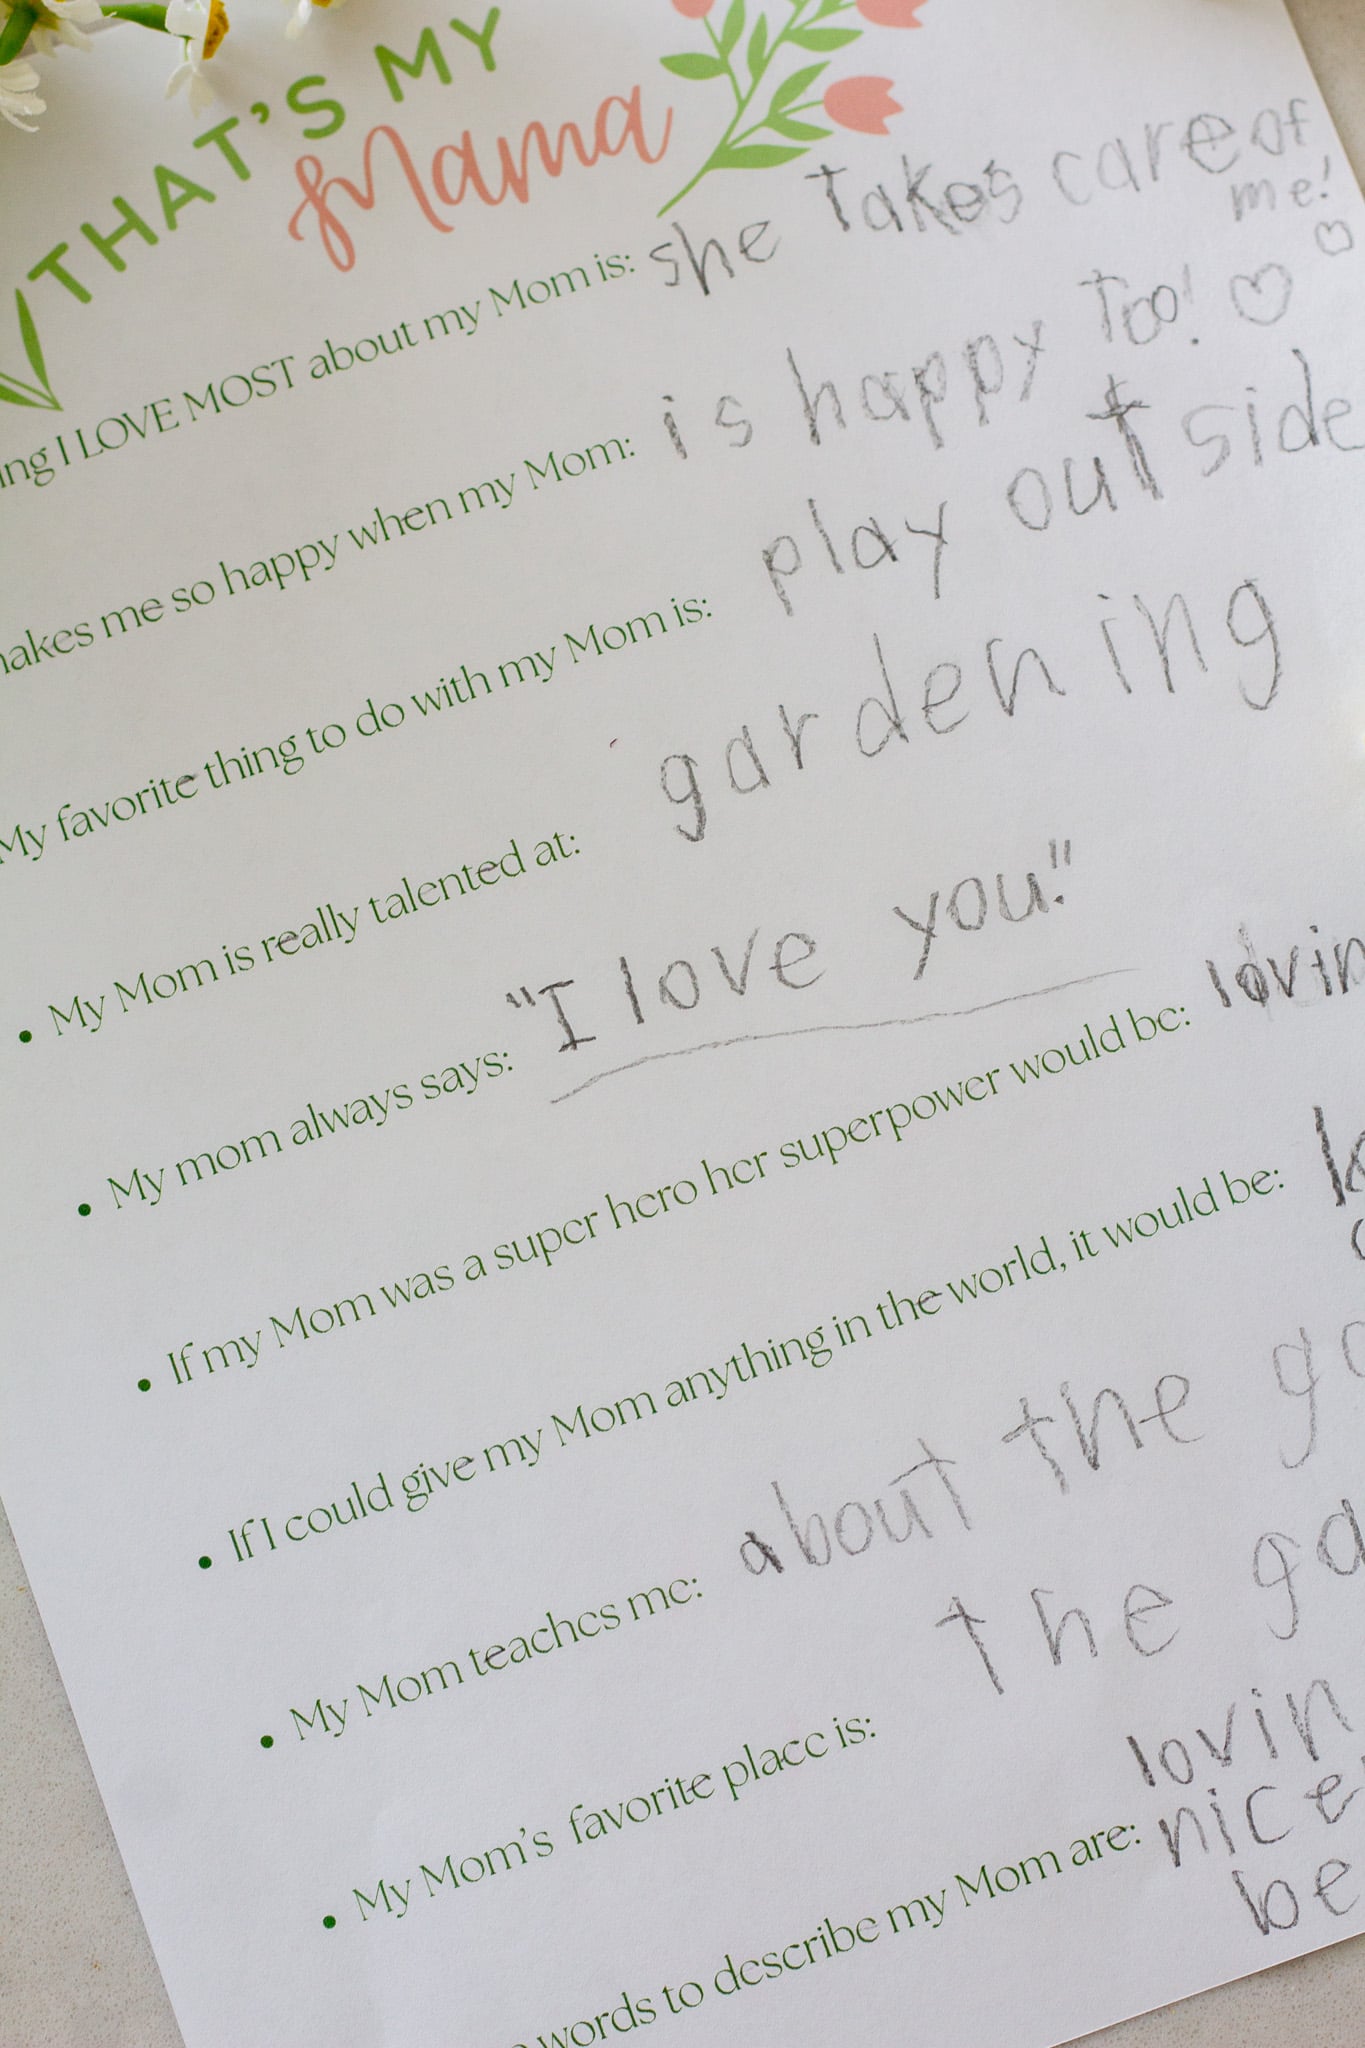 THAT'S MY
Mama
ing I LOVE MOST about my Mom is: she takes care of
me!
makes me so happy when my Mom: is happy too!
My favorite thing to do with my Mom is: play outside
My Mom is really talented at: gardening
My mom always says: "I love you."
If my Mom was a super hero her superpower would be: lovin
If I could give my Mom anything in the world, it would be:
My Mom teaches me: about the ga
My Mom's favorite place is: the ga
words to describe my Mom are: lovin
nice
be